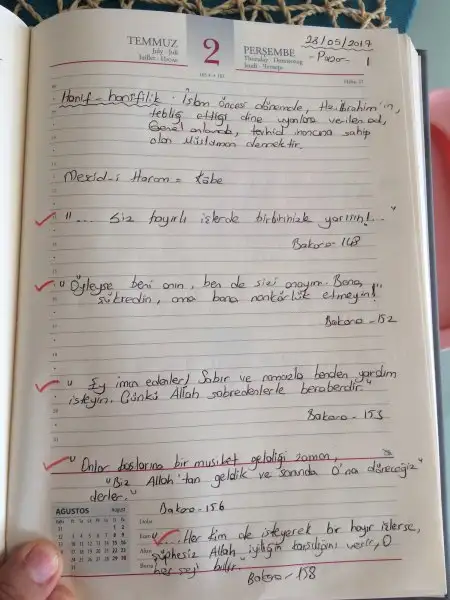 28/05/2017
- Pazar -
1
TEMMUZ
July - Juli
2
PERŞEMBE
Thursday - Donnerstag
Hanif - haniflik : İslam öncesi dönemde, Hz. İbrahim'in,
tebliğ ettiği dine uyanlara verilen ad,
Genel anlamda, tevhid inancına sahip
olan Müslüman demektir.
Mescid-i Haram = Kâbe
"... Siz hayırlı işlerde birbirinizle yarışın!..."
Bakara - 148
"Öyleyse beni anın, ben de sizi anayım. Bana,
şükredin, ama bana nankörlük etmeyin!"
Bakara - 152
"Ey iman edenler! Sabır ve namazla benden yardım
isteyin. Çünkü Allah sabredenlerle beraberdir."
Bakara - 153
"Onlar başlarına bir musibet geldiği zaman,
"Biz Allah'tan geldik ve sonunda O'na döneceğiz"
derler."
Bakara - 156
AĞUSTOS
August
"... Her kim de isteyerek bir hayır işlerse,
şüphesiz Allah iyiliğin karşılığını verir, O
her şeyi bilir."
Bakara - 158